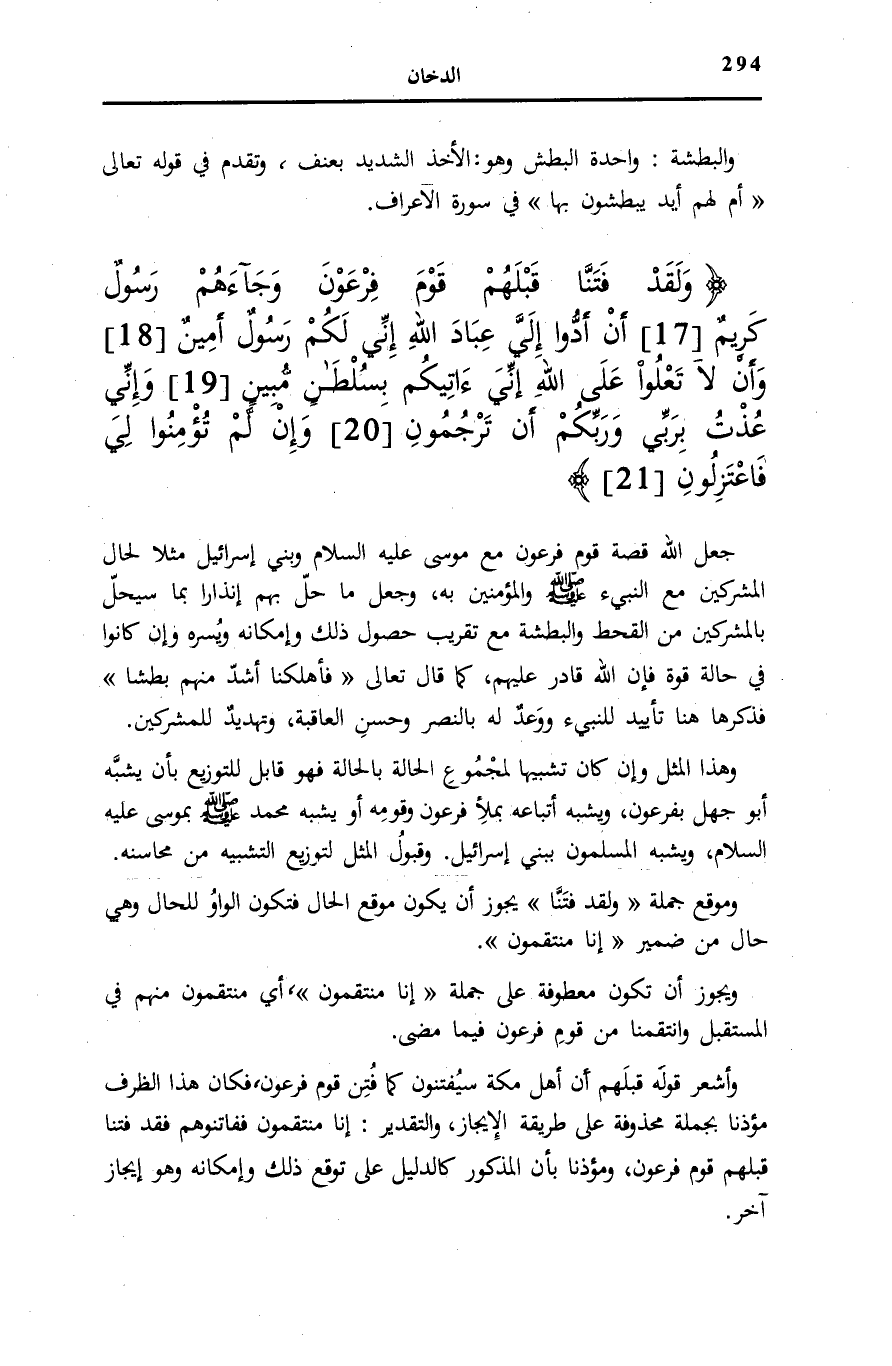 294
الدخان
والبطشة : واحدة البطش وهو : الأخذ الشديد بعنف ، وتقدم في قوله تعالى
« أم لهم أيد يبطشون بها » في سورة الأعراف.
﴿ وَلَقَدْ فَتَنَّا قَبْلَهُمْ قَوْمَ فِرْعَوْنَ وَجَآءَهُمْ رَسُولٌ
كَرِيمٌ [17] أَنْ أَدُّوا إِلَيَّ عِبَادَ اللهِ إِنِّي لَكُمْ رَسُولٌ أَمِينٌ [18]
وَأَنْ لاَ تَعْلُواْ عَلَى اللهِ إِنِّيَ ءَاتِيكُم بِسُلْطَـٰنٍ مُّبِينٍ [19] وَإِنِّي
عُذْتُ بِرَبِّي وَرَبِّكُمْ أَن تَرْجُمُونِ [20] وَإِنْ لَّمْ تُؤْمِنُوا لِيَ
فَاعْتَزِلُونِ [21] ﴾
جعل الله قصة قوم فرعون مع موسى عليه السلام وبني إسرائيل مثلا لحال
المشركين مع النبيء ﷺ والمؤمنين به، وجعل ما حلّ بهم إنذارا بما سيحلّ
بالمشركين من القحط والبطشة مع تقريب حصول ذلك وإمكانه ويُسره وإن كانوا
في حالة قوة فإن الله قادر عليهم، كما قال تعالى « فأهلكنا أشدّ منهم بطشا »
فذكرها هنا تأييد للنبيء ووَعدٌ له بالنصر وحسنِ العاقبة، وتهديدٌ للمشركين.
وهذا المثل وإن كان تشبيها لمجْمُوعِ الحالة بالحالة فهو قابل للتوزيع بأن يشبَّه
أبو جهل بفرعون، ويشبه أتباعه بملأِ فرعون وقومِه أو يشبه محمد ﷺ بموسى عليه
السلام، ويشبه المسلمون ببني إسرائيل. وقبولُ المثل لتوزيع التشبيه من محاسنه.
وموقع جملة « ولقد فتَنَّا » يجوز أن يكون موقع الحال فتكون الواوُ للحال وهي
حال من ضمير « إنا منتقمون ».
ويجوز أن تكون معطوفة على جملة « إنا منتقمون »، أي منتقمون منهم في
المستقبل وانتقمنا من قومِ فرعون فيما مضى.
وأشعر قولَه قبلَهم أن أهل مكة سيُفتنون كما فُتِن قوم فرعون، فكان هذا الظرف
مؤذنا بجملة محذوفة على طريقة الإِيجاز، والتقدير : إنا منتقمون ففاتنوهم فقد فتنا
قبلهم قوم فرعون، ومؤذنا بأن المذكور كالدليل على توقع ذلك وإمكانه وهو إيجاز
آخر.